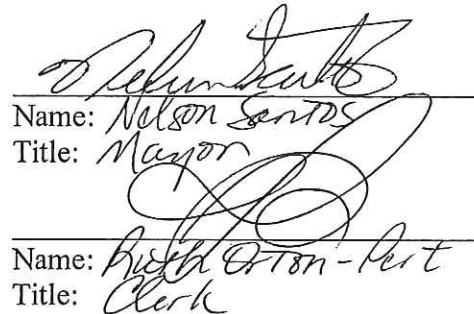 Name: Nelson Santos
Title: Mayor
Name: Ruth Orton-Pert
Title: Clerk